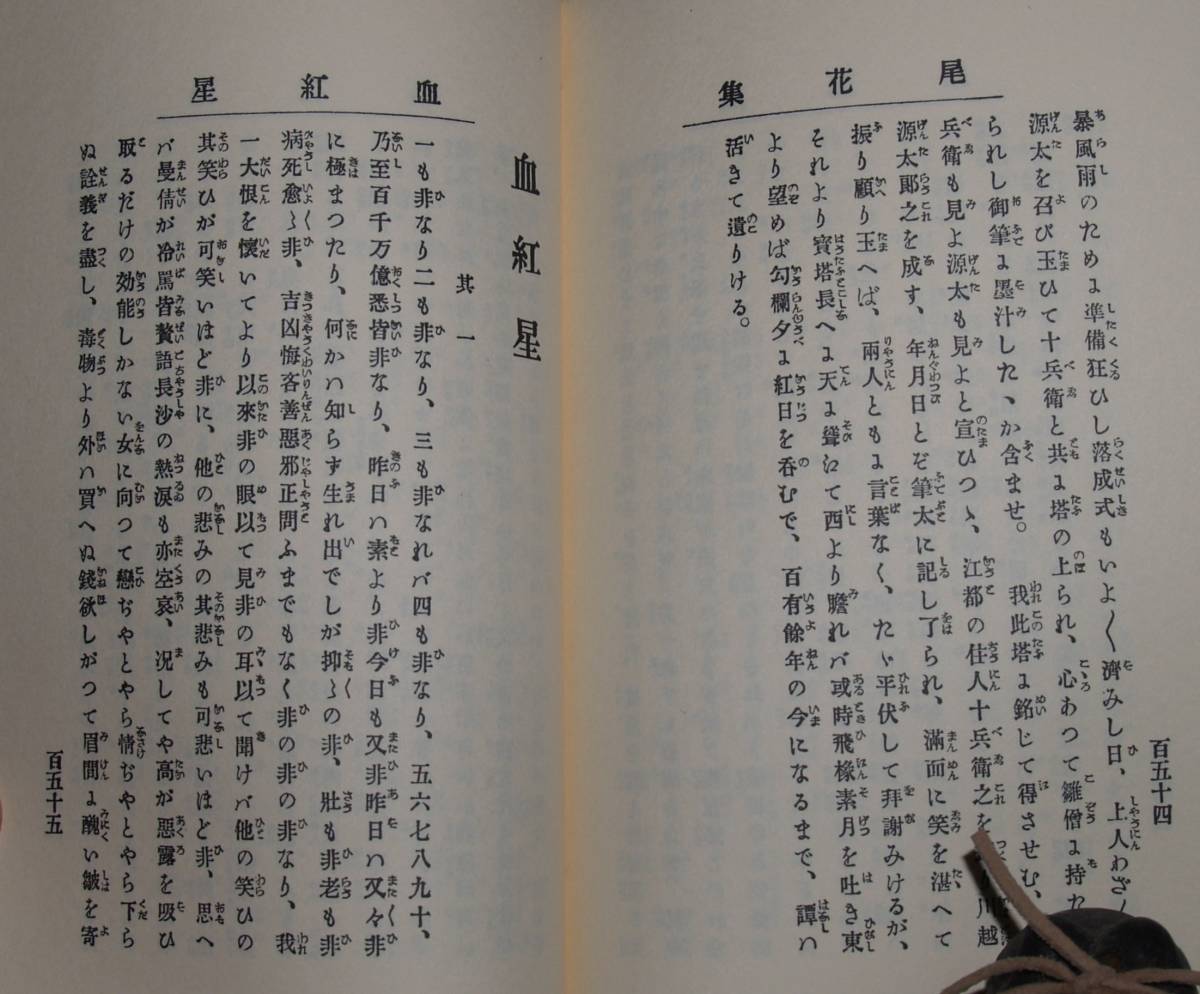 尾花集
暴風雨のために準備狂ひし落成式もいよ〱濟みし日、上人わざ
源太を召び玉ひて十兵衛と共に塔の上られ、心あつて雛僧に持た
られし御筆に墨汁したゝか含ませ。我此塔に銘じて得させむ、
兵衛も見よ源太も見よと宣ひつゝ、江都の住人十兵衛之を 川越
源太郎之を成す、年月日とぞ筆太に記し了られ、滿面に笑を湛へて
振り顧り玉へば、兩人ともに言葉なく、たゞ平伏して拜謝みけるが、
それより寳塔長へに天に聳江て西より瞻れバ或時飛檐素月を吐き東
より望めば勾欄夕に紅日を呑むで、百有餘年の今になるまで、譚ハ
活きて遺りける。
百五十四
血紅星
血紅星
其一
一も非なり二も非なり、三も非なれバ四も非なり、五六七八九十、
乃至百千万億悉皆非なり、昨日ハ素より非今日も又非昨日ハ又々非
に極まつたり、何かハ知らず生れ出でしが抑〻の非、壯も非老も非
病死愈〻非、吉凶悔吝善惡邪正問ふまでもなく非の非の非なり、我
一大恨を懷いてより以來非の眼以て見非の耳以て聞けバ他の笑ひの
其笑ひが可笑いほど非に、他の悲みの其悲みも可悲いほど非、思へ
バ曼倩が冷罵皆贅語長沙の熱涙も亦空哀、況してや高が惡露を吸ひ
取るだけの効能しかない女に向つて戀ぢやとやら情ぢやとやら下ら
ぬ詮義を盡し、毒物より外ハ買へぬ錢欲しがつて眉間に醜い皺を寄
百五十五